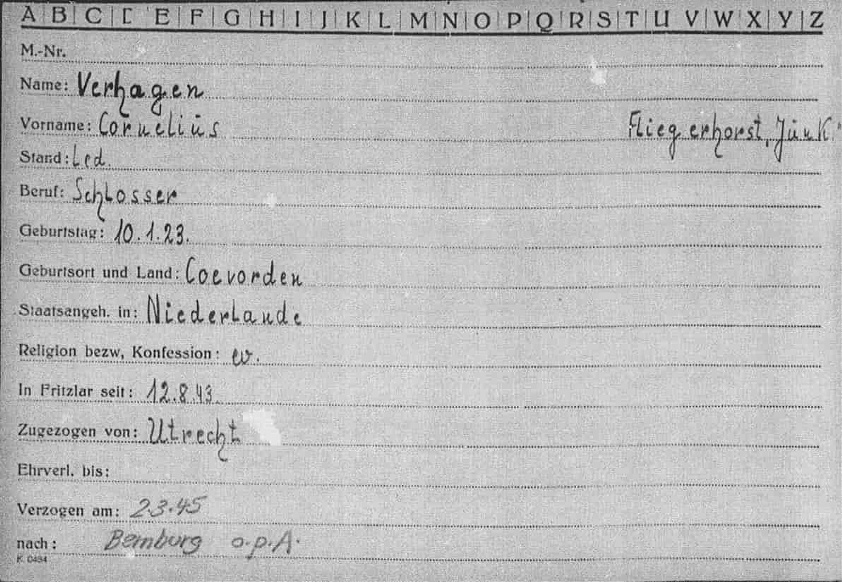 A B C D E F G H I J K L M N O P Q R S T U V W X Y Z
M.-Nr.
Name: Verhagen
Vorname: Cornelius Fliegerhorst, Junk.
Stand: Led.
Beruf: Schlosser
Geburtstag: 10.1.23.
Geburtsort und Land: Coevorden
Staatsangeh. in: Niederlande
Religion bezw, Konfession: ev.
In Fritzlar seit: 12.8.43.
Zugezogen von: Utrecht
Ehrverl. bis:
Verzogen am: 2.3.45
nach: Bernburg o.p.A.
K. 0494